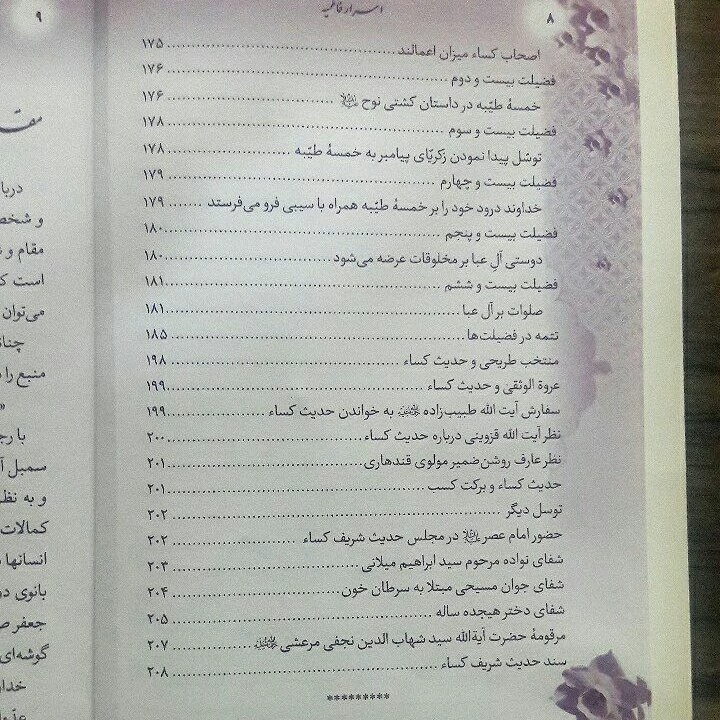 ۸
اسرار فاطمیه
اصحاب کساء میزان اعمالند ........ ۱۷۵
فضیلت بیست و دوم ........ ۱۷۶
خمسهٔ طیّبه در داستان کشتی نوح ........ ۱۷۶
فضیلت بیست و سوم ........ ۱۷۸
توسّل پیدا نمودن زکریّای پیامبر به خمسهٔ طیّبه ........ ۱۷۸
فضیلت بیست و چهارم ........ ۱۷۹
خداوند درود خود را بر خمسهٔ طیّبه همراه با سیبی فرو می‌فرستد ........ ۱۷۹
فضیلت بیست و پنجم ........ ۱۸۰
دوستی آلِ عبا بر مخلوقات عرضه می‌شود ........ ۱۸۰
فضیلت بیست و ششم ........ ۱۸۱
صلوات بر آل عبا ........ ۱۸۱
تتمه در فضیلت‌ها ........ ۱۸۵
منتخب طریحی و حدیث کساء ........ ۱۹۸
عروة الوثقی و حدیث کساء ........ ۱۹۹
سفارش آیت الله طبیب‌زاده به خواندن حدیث کساء ........ ۱۹۹
نظر آیت الله قزوینی درباره حدیث کساء ........ ۲۰۰
نظر عارف روشن‌ضمیر مولوی قندهاری ........ ۲۰۱
حدیث کساء و برکت کسب ........ ۲۰۱
توسل دیگر ........ ۲۰۲
حضور امام عصر در مجلس حدیث شریف کساء ........ ۲۰۲
شفای نواده مرحوم سید ابراهیم میلانی ........ ۲۰۳
شفای جوان مسیحی مبتلا به سرطان خون ........ ۲۰۴
شفای دختر هیجده ساله ........ ۲۰۵
مرقومهٔ حضرت آیةالله سید شهاب الدین نجفی مرعشی ........ ۲۰۷
سند حدیث شریف کساء ........ ۲۰۸
*********
۹
دربا
و شخص
مقام و
است ک
می‌توان
چنان
منبع را
«
با رج
سمبل آ
و به نظ
کمالات
انسانها
بانوی در
جعفر ص
گوشه‌ای
خدا